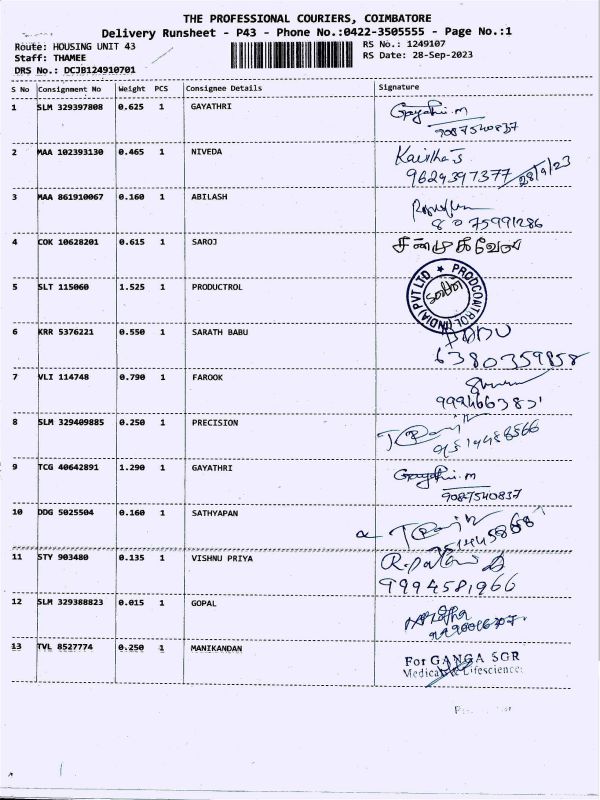 THE PROFESSIONAL COURIERS, COIMBATORE
Delivery Runsheet - P43 - Phone No.:0422-3505555 - Page No.:1
Route: HOUSING UNIT 43
RS No.: 1249107
Staff: THAMEE
RS Date: 28-Sep-2023
DRS No.: DCJB124910701
S No Consignment No Weight PCS Consignee Details Signature
1 SLM 329397808 0.625 1 GAYATHRI Gayathri.M
9087540837
2 MAA 102393130 0.465 1 NIVEDA
9629397377 28/9/23
3 MAA 861910067 0.160 1 ABILASH
8075991286
4 COK 10628201 0.615 1 SAROJ சண்முகவேல்
5 SLT 115060 1.525 1 PRODUCTROL PRODCONTROL (INDIA) PVT LTD ★
6 KRR 5376221 0.550 1 SARATH BABU BABU
6380359858
7 VLI 114748 0.790 1 FAROOK
8 SLM 329409885 0.250 1 PRECISION
9 TCG 40642891 1.290 1 GAYATHRI Gayathri.M
9087540837
10 DDG 5025504 0.160 1 SATHYAPAN
11 STY 903480 0.135 1 VISHNU PRIYA
9994581966
12 SLM 329388823 0.015 1 GOPAL
13 TVL 8527774 0.250 1 MANIKANDAN For GANGA SGR
Medical & Lifesciences